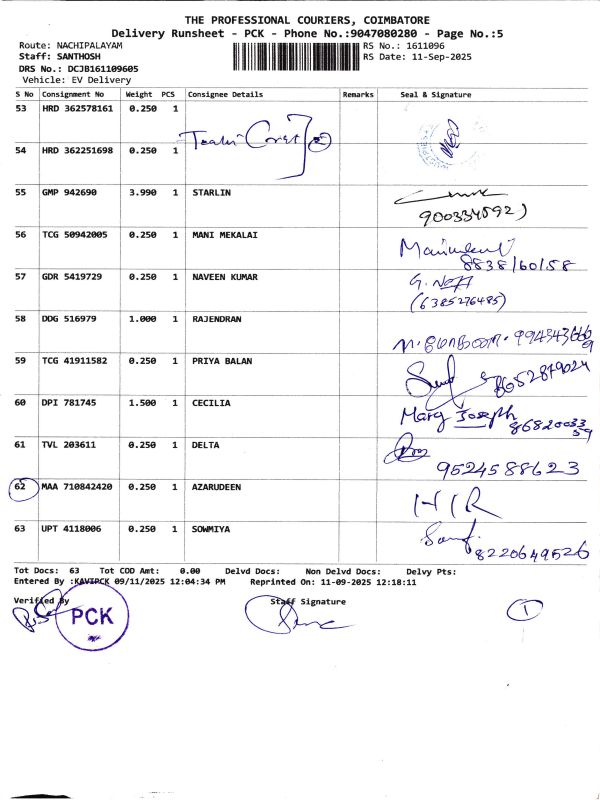 THE PROFESSIONAL COURIERS, COIMBATORE
Delivery Runsheet - PCK - Phone No.:9047080280 - Page No.:5
Route: NACHIPALAYAM RS No.: 1611096
Staff: SANTHOSH RS Date: 11-Sep-2025
DRS No.: DCJB161109605
Vehicle: EV Delivery
S No Consignment No Weight PCS Consignee Details Remarks Seal & Signature
53 HRD 362578161 0.250 1
54 HRD 362251698 0.250 1
55 GMP 942690 3.990 1 STARLIN
56 TCG 50942005 0.250 1 MANI MEKALAI
8838160158
57 GDR 5419729 0.250 1 NAVEEN KUMAR
(6385276485)
58 DDG 516979 1.000 1 RAJENDRAN
59 TCG 41911582 0.250 1 PRIYA BALAN
60 DPI 781745 1.500 1 CECILIA Mary Joseph
61 TVL 203611 0.250 1 DELTA
9524588623
62 MAA 710842420 0.250 1 AZARUDEEN H/R
63 UPT 4118006 0.250 1 SOWMIYA
8220649526
Tot Docs: 63 Tot COD Amt: 0.00 Delvd Docs: Non Delvd Docs: Delvy Pts:
Entered By :KAVIPCK 09/11/2025 12:04:34 PM Reprinted On: 11-09-2025 12:18:11
Verified By Staff Signature
PCK
1